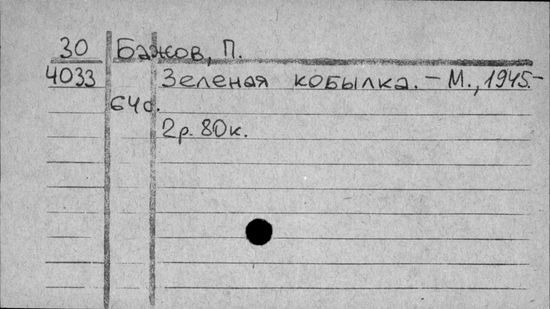 30 Бажов, П.
4033 Зеленая кобылка. – М., 1945. –
64с.
2р. 80к.